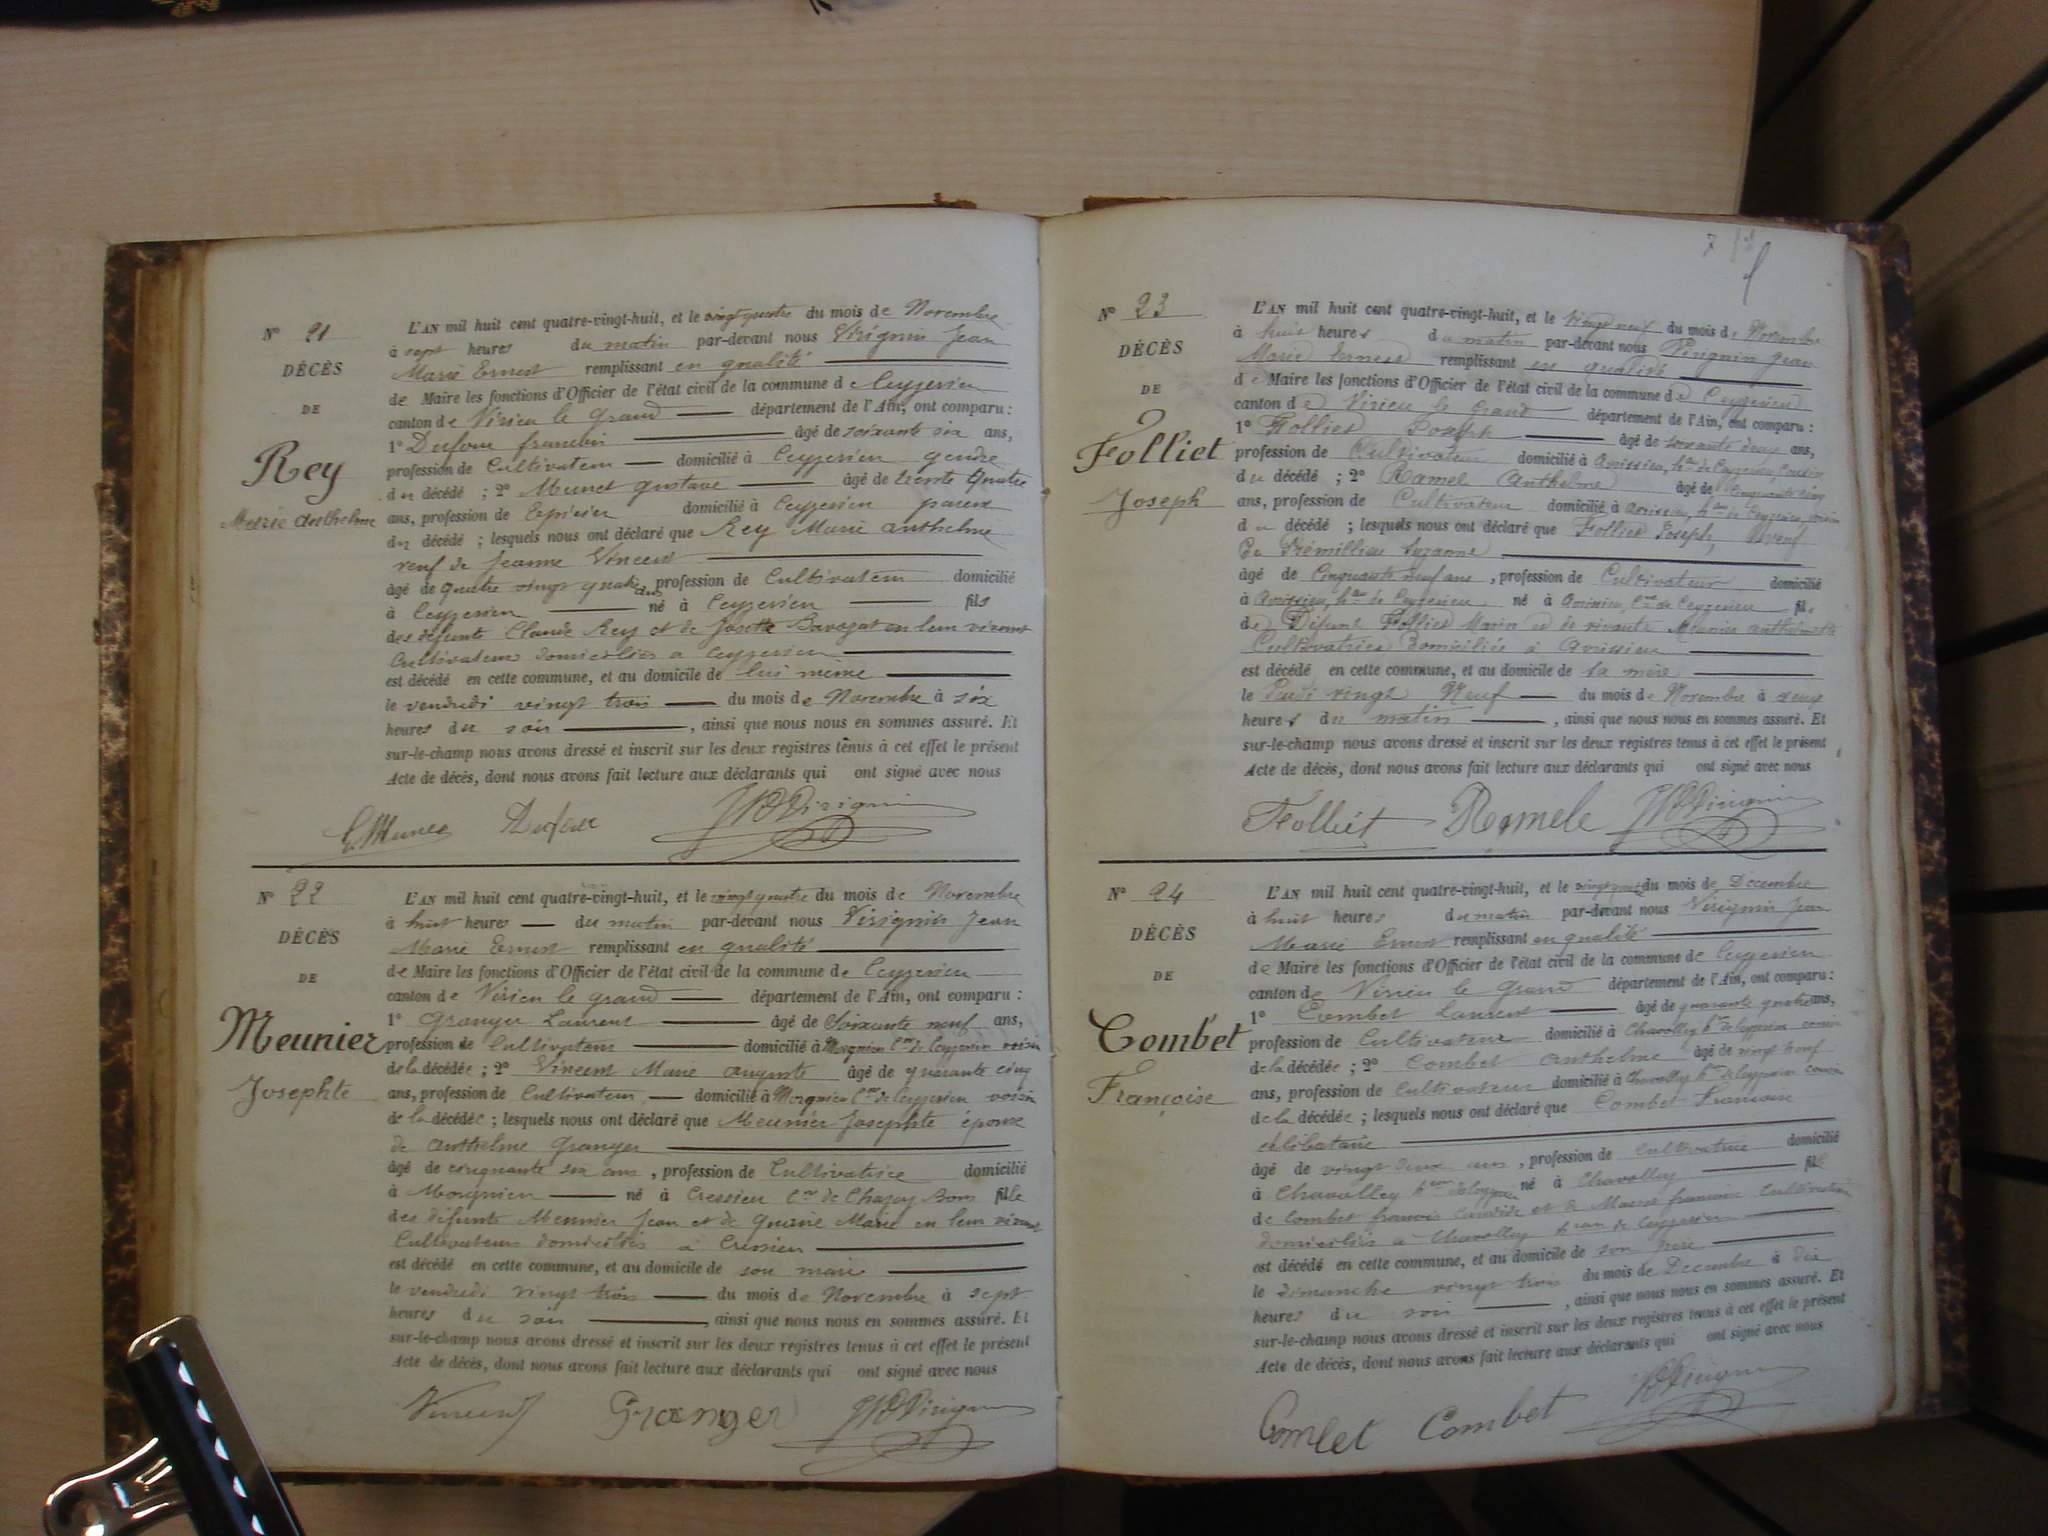 N° 21
DÉCÈS
DE
Rey
Marie Anthelme
L'AN mil huit cent quatre-vingt-huit, et le vingt quatre du mois de Novembre
à sept heures du matin par-devant nous Virignin Jean
Marie Ernest remplissant en qualité
de Maire les fonctions d'Officier de l'état civil de la commune de Ceyzerieu
canton de Virieu le grand département de l'Ain, ont comparu :
1° Dufour francbin âgé de soixante six ans,
profession de Cultivateur domicilié à Ceyzerieu gendre
du décédé ; 2° Munet gustave âgé de trente quatre
ans, profession de Epicier domicilié à Ceyzerieu parent
du décédé ; lesquels nous ont déclaré que Rey Marie anthelme
veuf de Jeanne Vincent
âgé de quatre vingt quatre ans, profession de Cultivateur domicilié
à Ceyzerieu né à Ceyzerieu fils
des défunts Claude Rey et de Josette Bavozat en leur vivant
Cultivateurs domiciliés a Ceyzerieu
est décédé en cette commune, et au domicile de lui même
le vendredi vingt trois du mois de Novembre à six
heures du soir , ainsi que nous nous en sommes assuré. Et
sur-le-champ nous avons dressé et inscrit sur les deux registres tenus à cet effet le présent
Acte de décès, dont nous avons fait lecture aux déclarants qui ont signé avec nous
G. Munet Dufour Virignin
N° 22
DÉCÈS
DE
Meunier
Josephte
L'AN mil huit cent quatre-vingt-huit, et le vingt quatre du mois de Novembre
à huit heures du matin par-devant nous Virignin Jean
Marie Ernest remplissant en qualité
de Maire les fonctions d'Officier de l'état civil de la commune de Ceyzerieu
canton de Virieu le grand département de l'Ain, ont comparu :
1° Granger Laurent âgé de Soixante neuf ans,
profession de Cultivateur domicilié à Morgnieu Cne de Ceyzerieu voisin
de la décédée ; 2° Vincent Marie auguste âgé de quarante cinq
ans, profession de Cultivateur domicilié à Morgnieu Cne de Ceyzerieu voisin
de la décédée ; lesquels nous ont déclaré que Meunier Josephte épouse
de Anthelme Granger
âgé de cinquante six ans , profession de Cultivatrice domicilié
à Morgnieu né à Cressieu Cne de Chazey Bons fille
des défunts Meunier Jean et de Marie en leur vivant
Cultivateurs domiciliés à Cressieu
est décédé en cette commune, et au domicile de son mari
le vendredi vingt trois du mois de Novembre à sept
heures du soir , ainsi que nous nous en sommes assuré. Et
sur-le-champ nous avons dressé et inscrit sur les deux registres tenus à cet effet le présent
Acte de décès, dont nous avons fait lecture aux déclarants qui ont signé avec nous
Vincent Granger Virignin
N° 23
DÉCÈS
DE
Folliet
Joseph
L'AN mil huit cent quatre-vingt-huit, et le Vingt neuf du mois de Novembre
à huit heures du matin par-devant nous Virignin Jean
Marie Ernest remplissant en qualité
de Maire les fonctions d'Officier de l'état civil de la commune de Ceyzerieu
canton de Virieu le Grand département de l'Ain, ont comparu :
1° Folliet Joseph âgé de soixante deux ans,
profession de Cultivateur domicilié à Avrissieu, hau de Ceyzerieu, Cousin
du décédé ; 2° Ramel Anthelme âgé de cinquante cinq
ans, profession de Cultivateur domicilié à Avrissieu, hau de Ceyzerieu, voisin
du décédé ; lesquels nous ont déclaré que Folliet Joseph, Veuf
De Prémillieu Suzanne
âgé de Cinquante neuf ans , profession de Cultivateur domicilié
à Avrissieu, hau de Ceyzerieu né à Avrissieu, Cne de Ceyzerieu fils
de Défunt Folliet Marin et de vivante Meunier anthelmette
Cultivatrice Domiciliée à Avrissieu
est décédé en cette commune, et au domicile de sa mère
le Jeudi vingt Neuf du mois de Novembre à deux
heures du matin , ainsi que nous nous en sommes assuré. Et
sur-le-champ nous avons dressé et inscrit sur les deux registres tenus à cet effet le présent
Acte de décès, dont nous avons fait lecture aux déclarants qui ont signé avec nous
Folliet Ramele Virignin
N° 24
DÉCÈS
DE
Combet
Françoise
L'AN mil huit cent quatre-vingt-huit, et le vingt quatre du mois de Décembre
à huit heures du matin par-devant nous Virignin Jean
Marie Ernest remplissant en qualité
de Maire les fonctions d'Officier de l'état civil de la commune de Ceyzerieu
canton de Virieu le Grand département de l'Ain, ont comparu :
1° Combet Laurent âgé de quarante quatre ans,
profession de Cultivateur domicilié à Chavolley hau de Ceyzerieu cousin
de la décédée ; 2° Combet Anthelme âgé de vingt neuf
ans, profession de Cultivateur domicilié à Chavolley hau de Ceyzerieu cousin
de la décédée ; lesquels nous ont déclaré que Combet Francoise
célibataire
âgé de vingt deux ans , profession de Cultivatrice domicilié
à Chavolley hau de Ceyzerieu né à Chavolley fille
de Combet francois et de francoise Cultivateurs
domiciliés à Chavolley hau de Ceyzerieu
est décédé en cette commune, et au domicile de son père
le dimanche vingt trois du mois de Decembre à dix
heures du soir , ainsi que nous nous en sommes assuré. Et
sur-le-champ nous avons dressé et inscrit sur les deux registres tenus à cet effet le présent
Acte de décès, dont nous avons fait lecture aux déclarants qui ont signé avec nous
Combet Combet Virignin